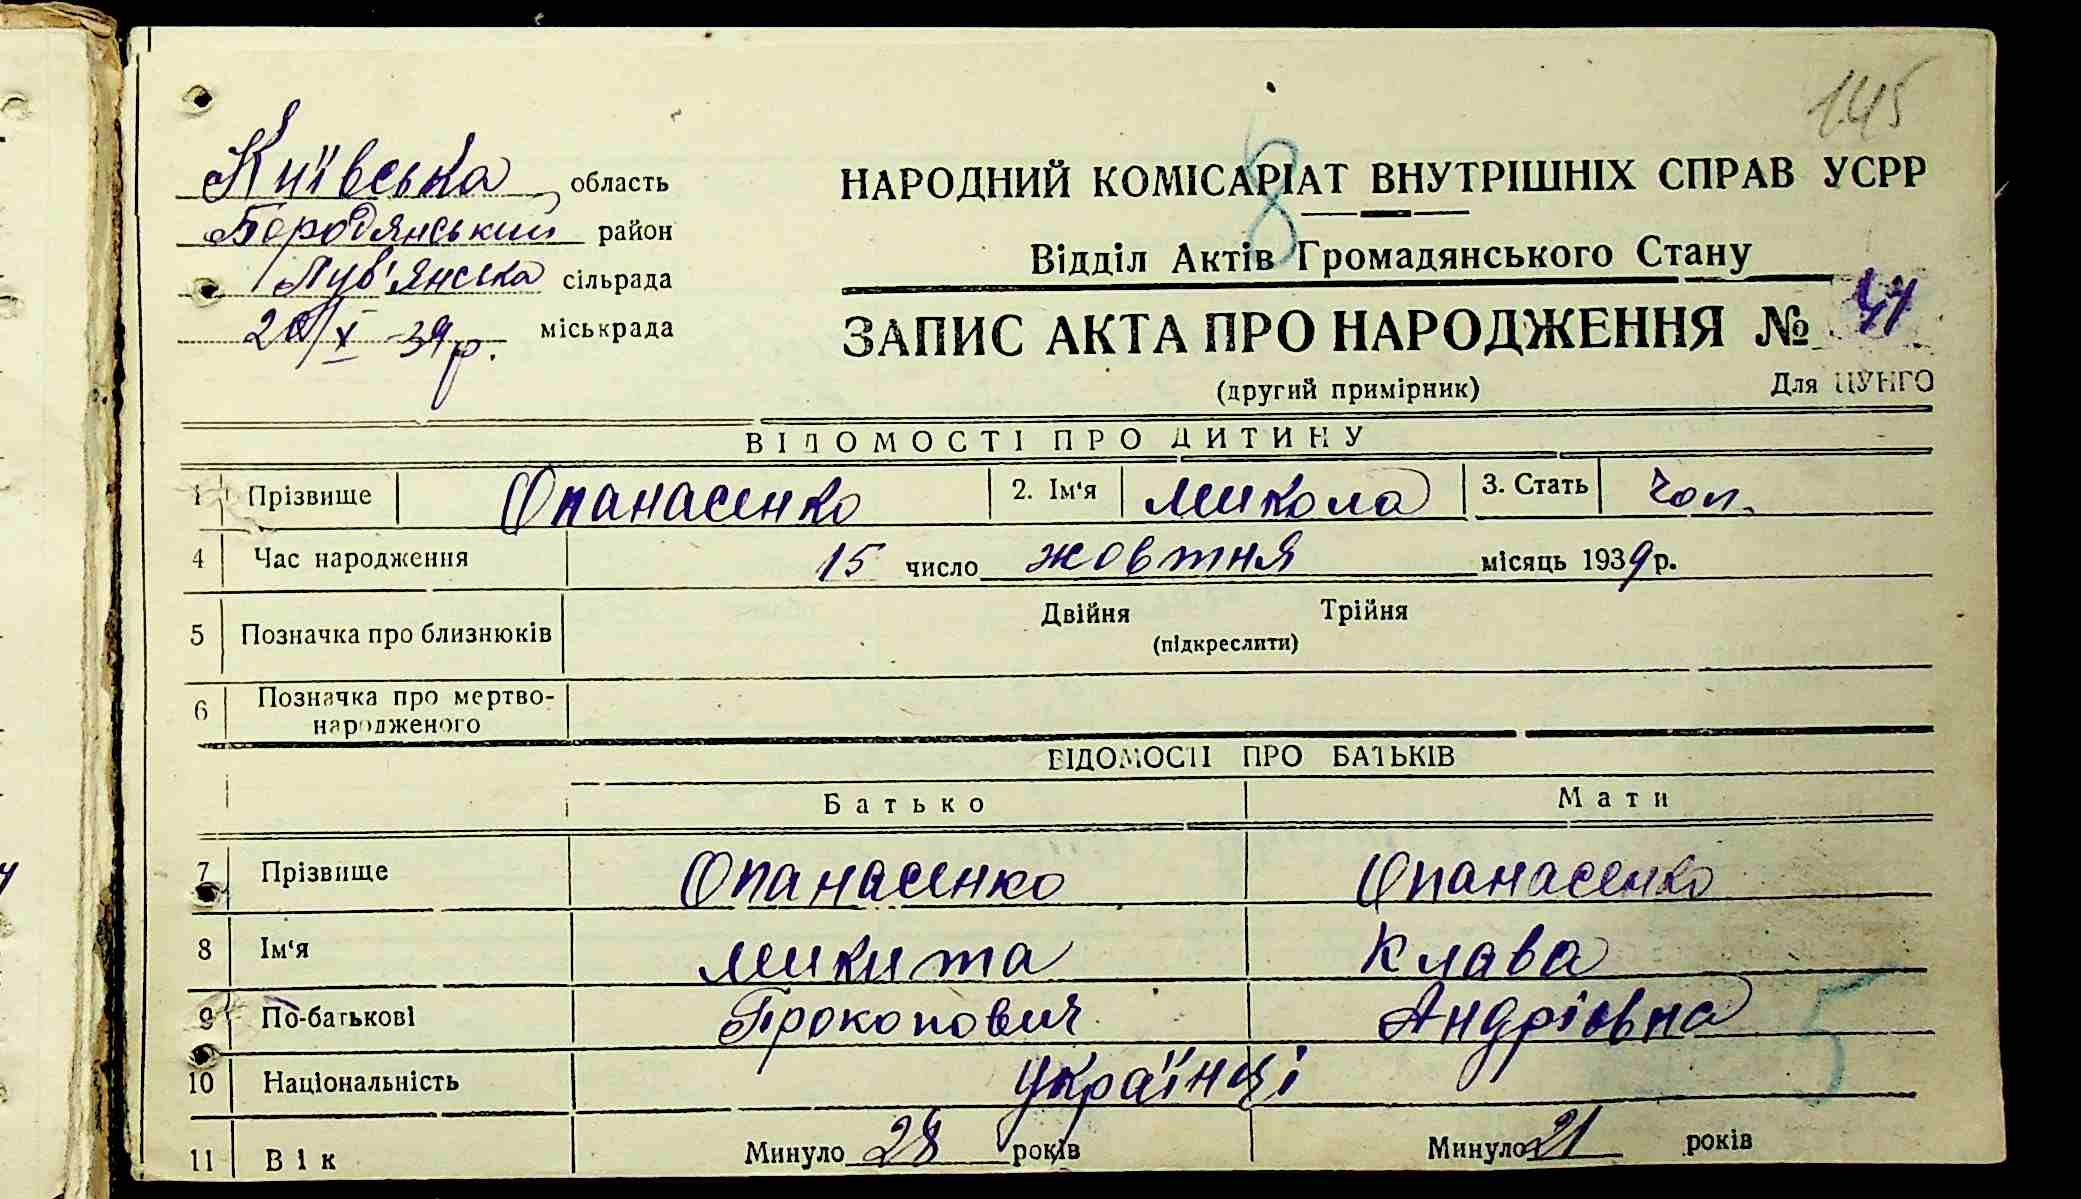 145
Київська область
Бородянський район
Луб'янська сільрада
20/X 39 р. міськрада
8
НАРОДНИЙ КОМІСАРІАТ ВНУТРІШНІХ СПРАВ УСРР
Відділ Актів Громадянського Стану
ЗАПИС АКТА ПРО НАРОДЖЕННЯ №
(другий примірник) Для ЦУНГО
ВІДОМОСТІ ПРО ДИТИНУ
1 Прізвище Опанасенко 2. Ім'я Микола 3. Стать чол.
4 Час народження 15 число жовтня місяць 1939 р.
5 Позначка про близнюків Двійня Трійня
(підкреслити)
6 Позначка про мертво-
народженого
ВІДОМОСТІ ПРО БАТЬКІВ
Батько Мати
7 Прізвище Опанасенко Опанасенко
8 Ім'я Микита Клава
9 По-батькові Прокопович Андріовна
5
10 Національність Українці
11 Вік Минуло 28 років Минуло 21 років